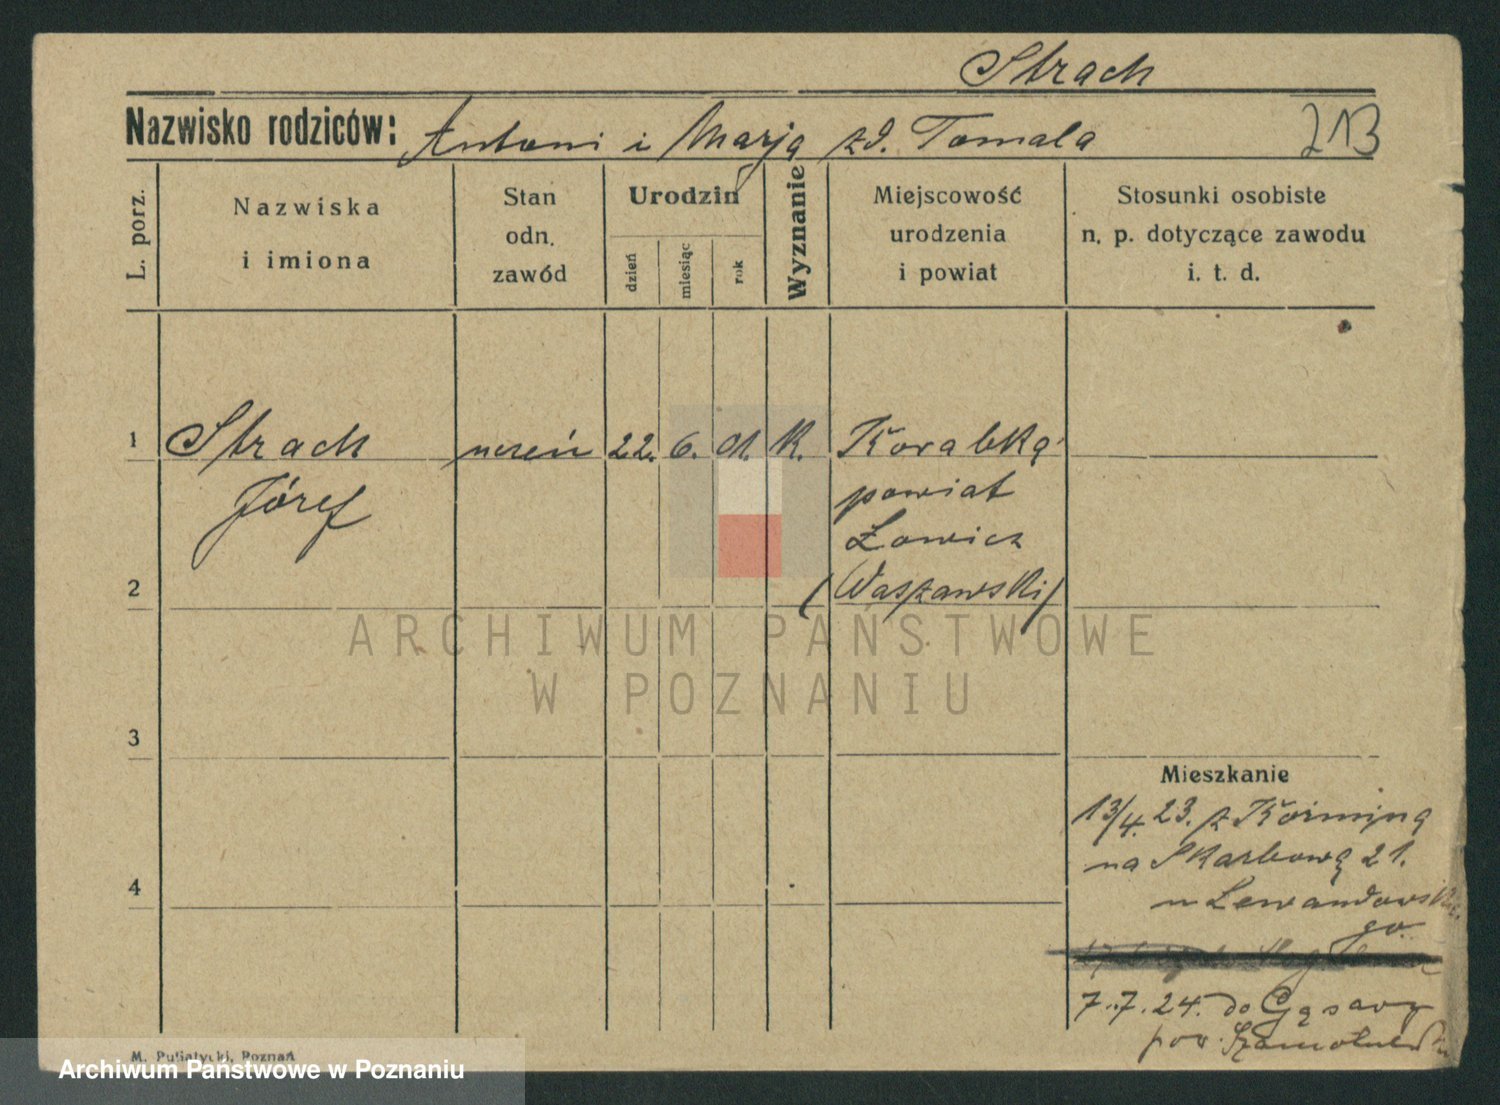 Strach
Nazwisko rodziców: Antoni i Marja zd. Tomala 213
L. porz.
Nazwiska
i imiona
Stan
odn.
zawód
Urodzin
dzień
miesiąc
rok
Wyznanie
Miejscowość
urodzenia
i powiat
Stosunki osobiste
n. p. dotyczące zawodu
i. t. d.
1 Strach uczeń 22. 6. 01. K. Korabką
Józef
powiat
Łowicz
2
(Waszawski)
3
4
Mieszkanie
13/4. 23. z
na Skarbową 21.
u Lewandowskie
go.
7.7.24. do Gąsawy
pow.
M. Puljatycki, Poznań
ARCHIWUM PAŃSTWOWE
W POZNANIU
Archiwum Państwowe w Poznaniu